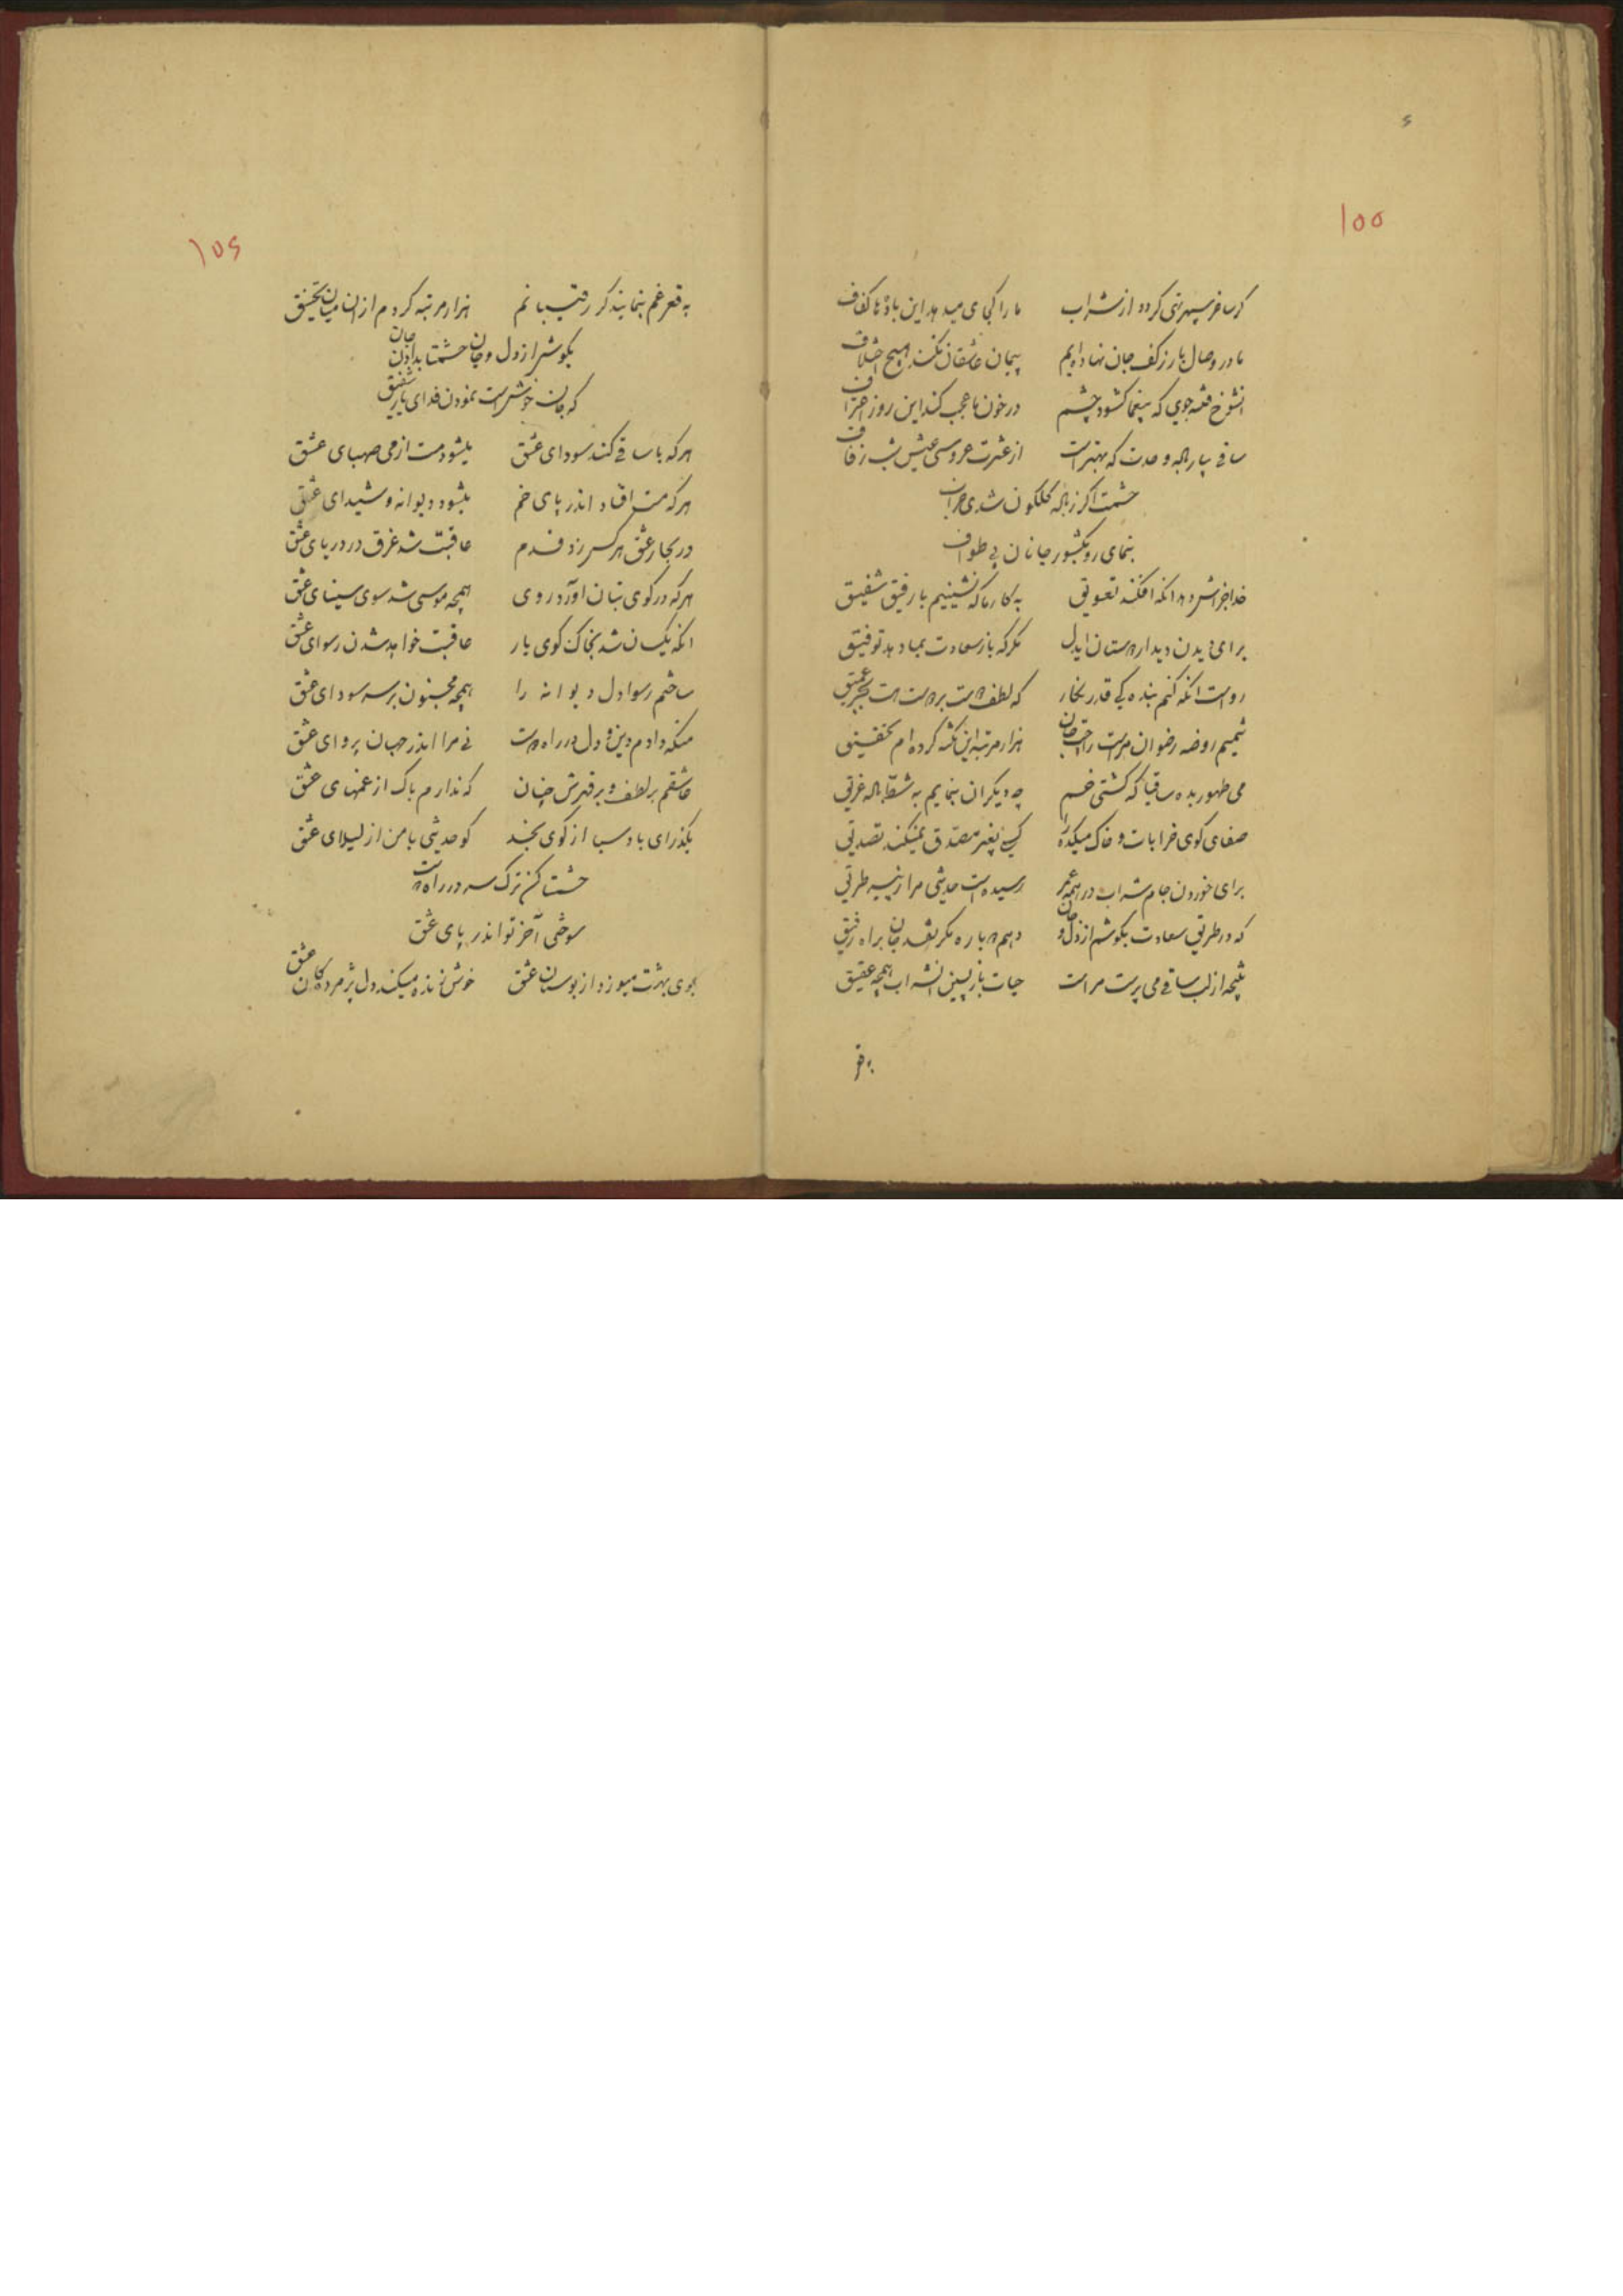 ۱۵۵
گر ساغر سپهر تهی گردد از شراب ما را کجا می میدهد این باده ناکفاف
ما در وصال یار ز کف جان نهاده‌ایم پیمان عاشقان نکند هیچ اختلاف
انشوخ فتنه جوی که بیغما کشود چشم در خون ما عجب کند این روز
ساقی بیار باده وحدت که بهتر است از عشرت عروسی و عیش شب زفاف
حشمت اگر ز باده گلگون شدی خراب
بنمای رو بکشور جانان پی طواف
خدا جزاش دهد انکه افکند تعویق به کار ما که نشینیم با رفیق شفیق
برای دیدن دیدار دوستان ایدل مگر که باز سعادت بما دهد توفیق
رواست انکه کنم بنده کی قدر بخار که لطف دوست بدوست است بحر عمیق
شمیم روضه رضوان مراست راحت جان هزار مرتبه این نکته کرده‌ام تحقیق
می طهور بده ساقیا که کشتی خم چه دیگران بنمایم به شط باده غریق
صفای کوی خرابات و خاک میکده را کسی بغیر مصدق نمیکند تصدیق
برای خوردن جام شراب در همه عمر رسیده است حدیثی مرا ز پیر طریق
که در طریق سعادت بکوشم از دل و جان دهم دوباره مگر نقد جان براه رفیق
نتیجه از لب ساقی می پرست مراست حیات باز پسین انشراب همچه عقیق
به قعر
۱۵۶
به قعر غم بنمایند گر رقیبانم هزار مرتبه کردم از ان میان تحقیق
بکوش از دل و جان حشمتا بدادن جان
که جان خوش است نمودن فدای یار شفیق
هر که با ساقی کند سودای عشق میشود مست از می صهبای عشق
هر که مست افتاد اندر پای خم میشود دیوانه و شیدای عشق
در بحار عشق هر کس زد قدم عاقبت شد غرق در دریای عشق
هر که در کوی بتان اورد روی همچه موسی شد سوی سینای عشق
انکه یکسان شد بخاک کوی یار عاقبت خواهد شدن رسوای عشق
ساختم رسوا دل دیوانه را همچه مجنون بر سر سودای عشق
منکه دادم دین و دل در راه دوست نی مرا اندر جهان پروای عشق
عاشقم بر لطف و بر قهرش چنان که ندارم باک از غمهای عشق
بگذر ای باد صبا از کوی نجد گو حدیثی با من از لیلای عشق
حشمتا کن ترک سر در راه دوست
سوختی آخر تو اندر پای عشق
بوی بهشت میوزد از بوستان عشق خوش زنده میکند دل پژمردگان عشق